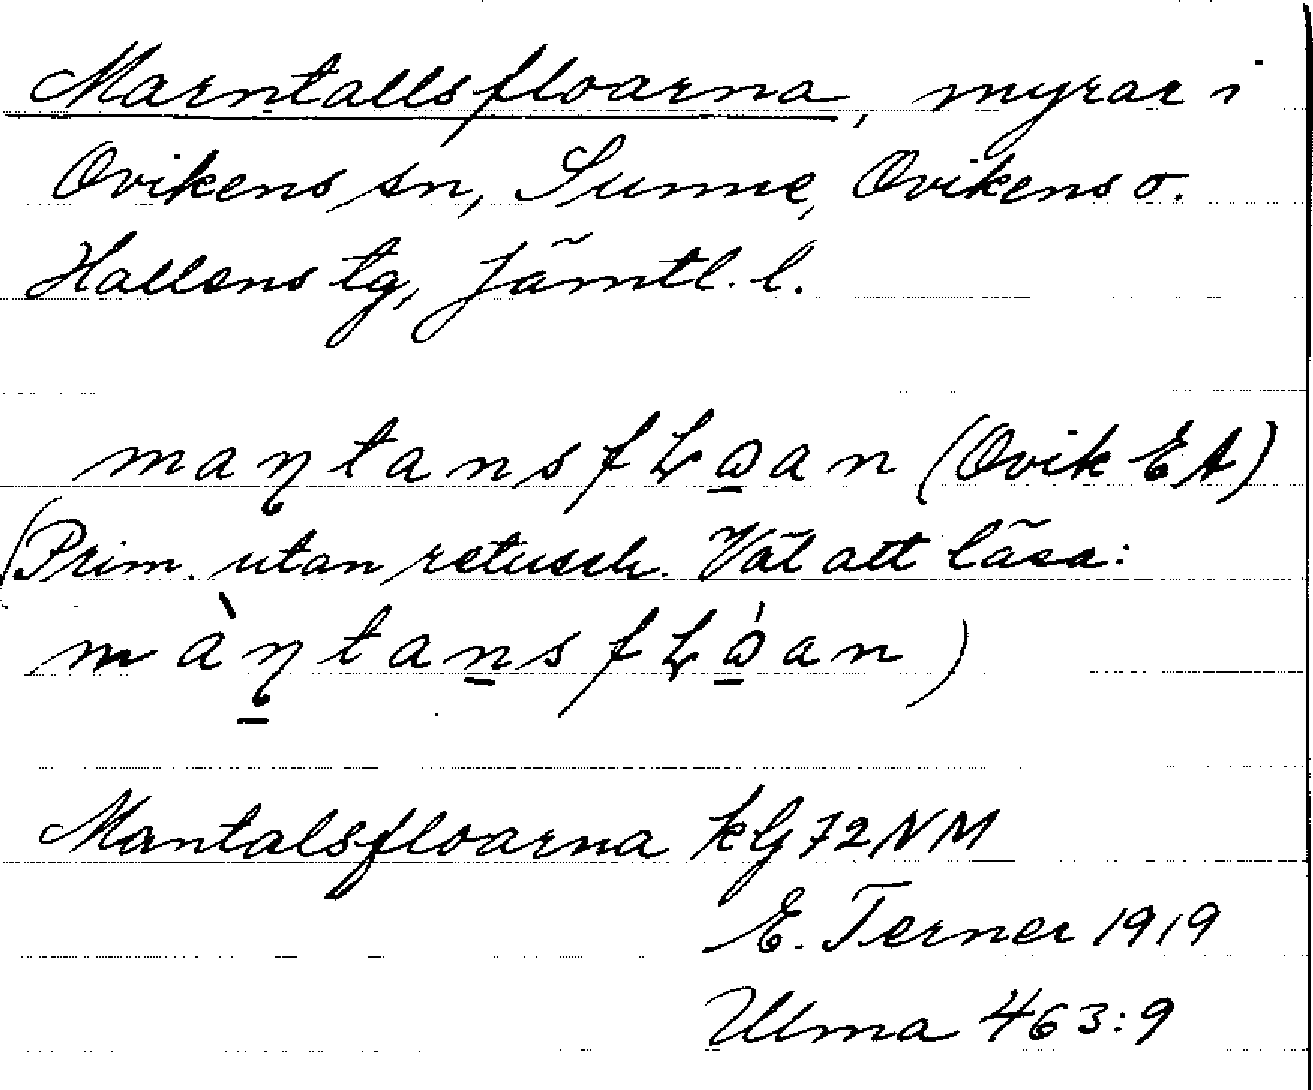 Marntallsfloarna, myrar i
Ovikens sn, Sunne, Ovikens o.
Hallens tg, Jämtl. l.
maɳtansfʟɷ̱an (Ovik EA)
(Prim. utan retusch. Väl att läsa:
màɳ̱taṉsfʟɷ̱́an)
Mantalsfloarna kG72NM
E. Terner 1919
Ulma 463:9